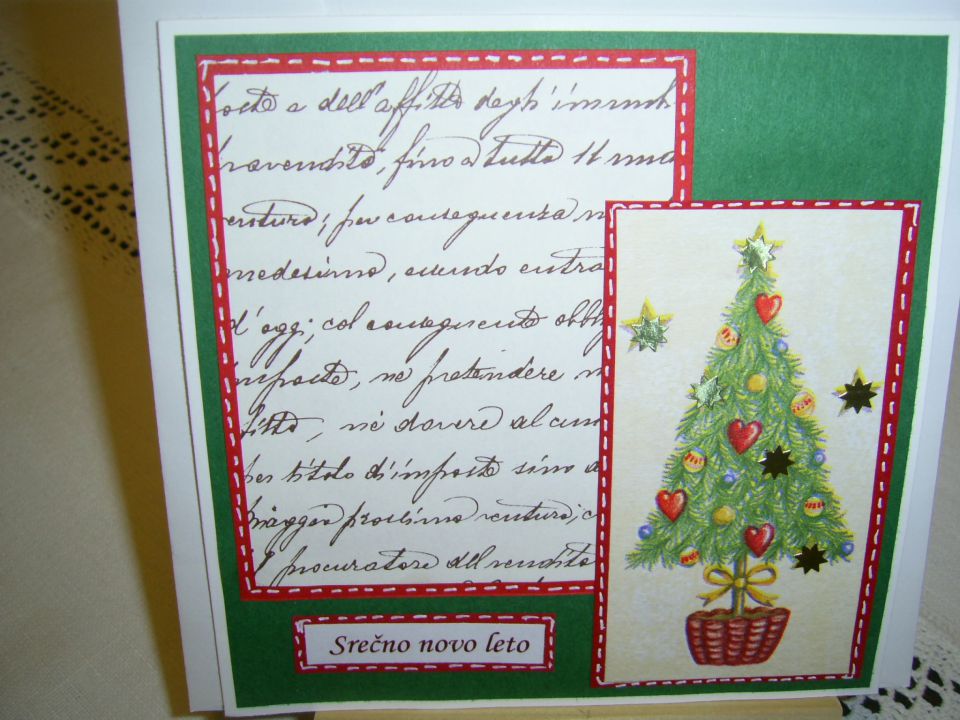 e dell'affitto degl'
provenduto, fino a tutto 11
venturo; per conseguenza
medesimo, avendo
d'oggi, col conseguente
imposte, ne pretendere
fitto, nè dovere al
per titolo d'imposte sino a
maggio prossimo venturo;
il procuratore del venduto
Srečno novo leto